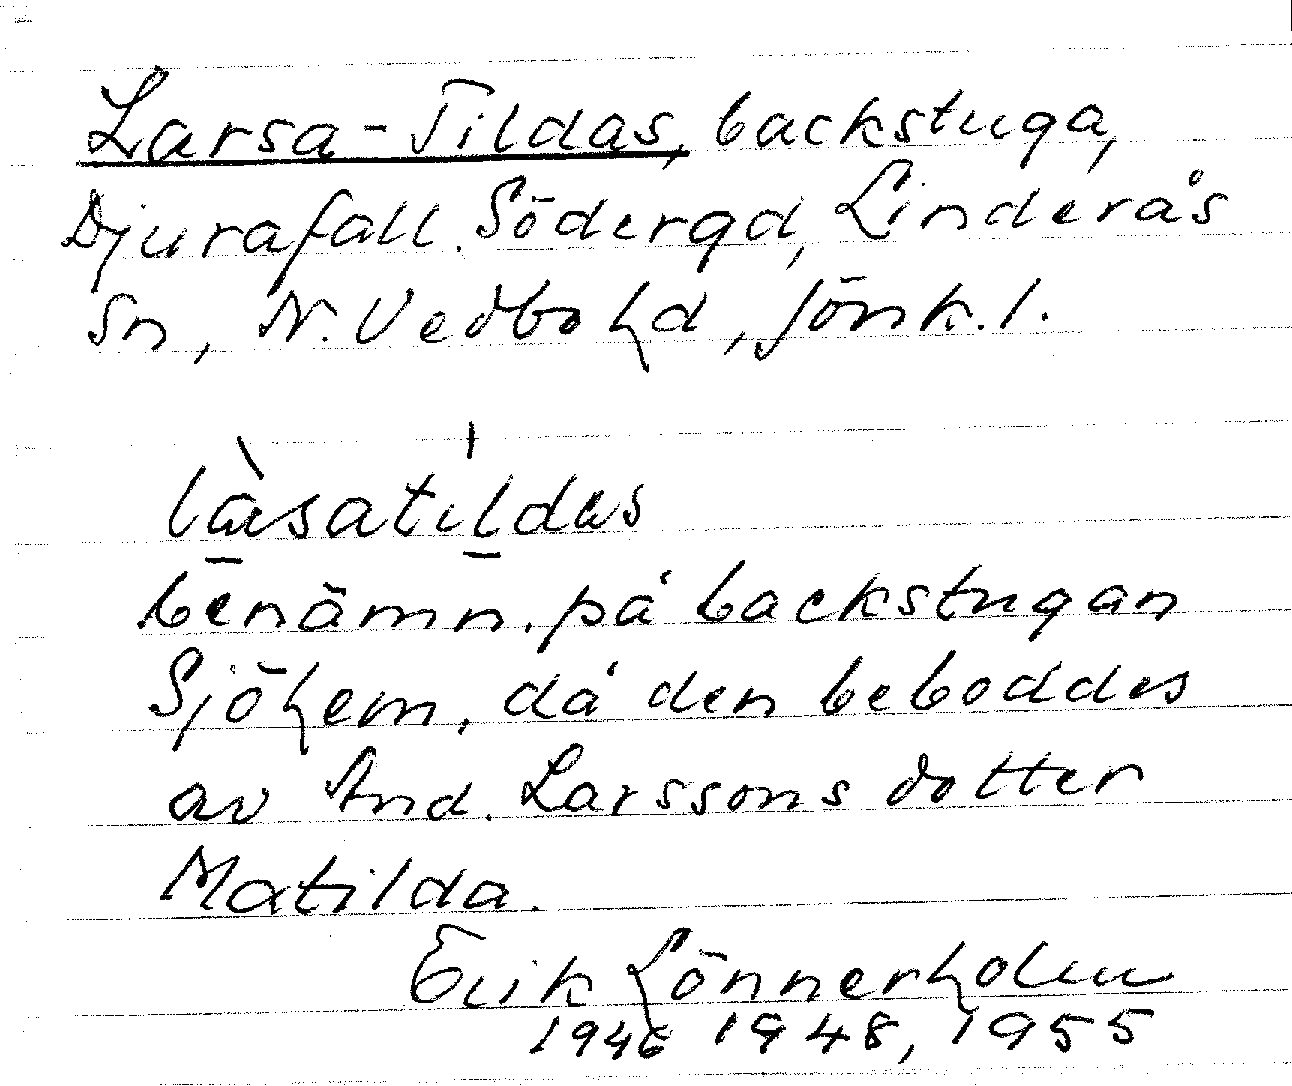 Larsa-Tildas, backstuga,
Djurafall. Södergd, Linderås
Sn, N. Vedbohd, Jönk.l.
làsatıldas
benämn. på backstugan
Sjöhem, då den beboddes
av And. Larssons dotter
Matilda.
Erik Lönnerholm
1946 1948, 1955